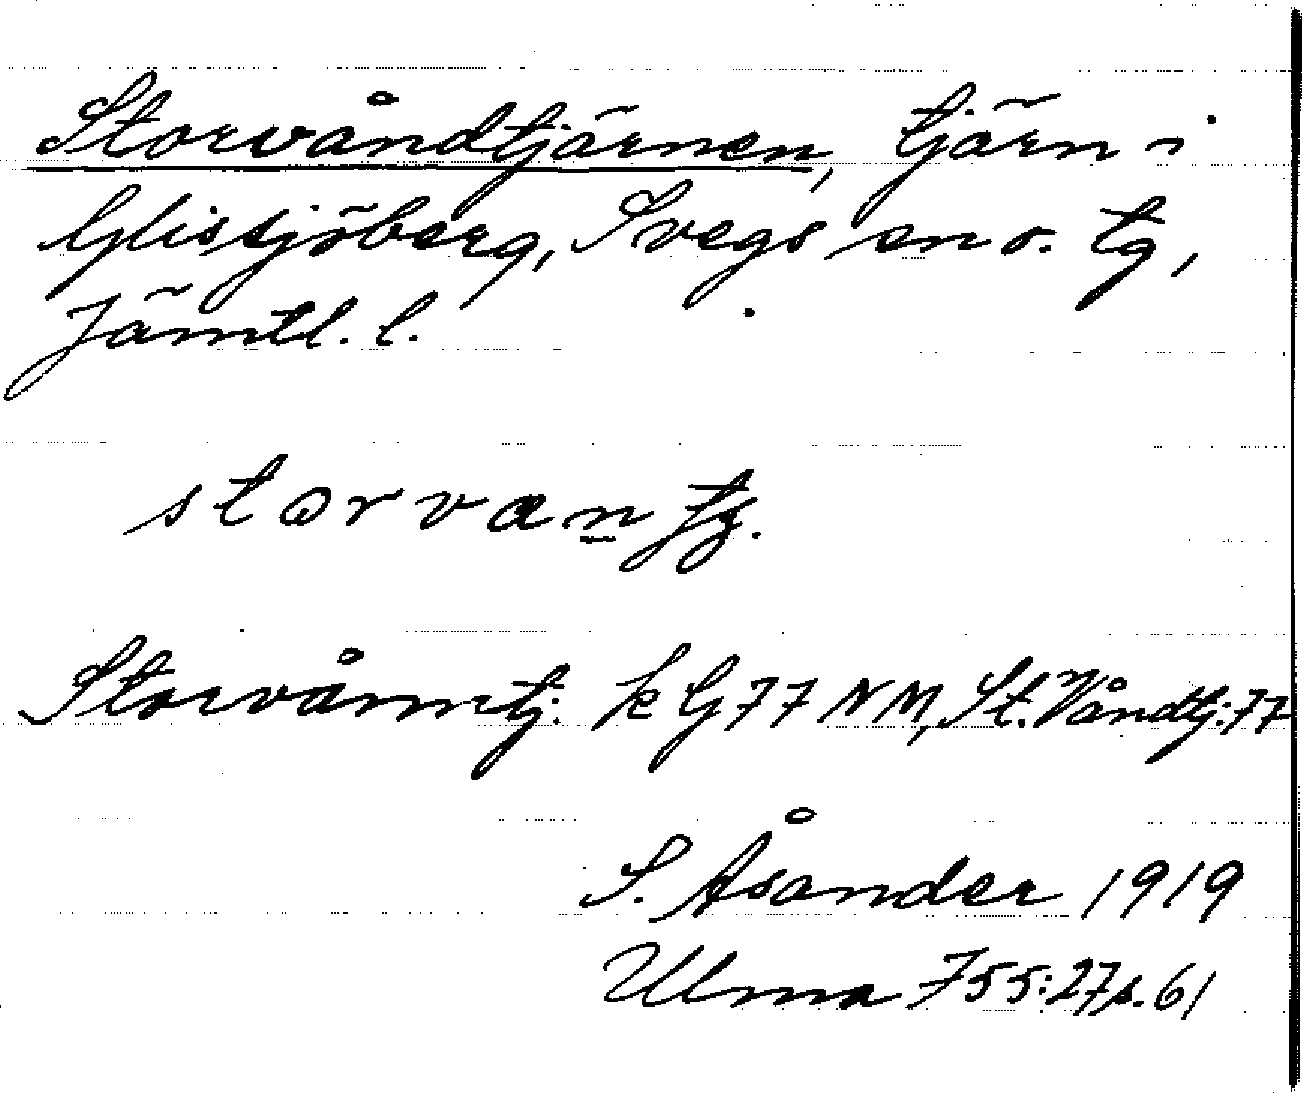 Storvåndtjärnen, tjärn i
Glissjöberg, Svegs sn o. tg,
Jämtl. l.
storvan
Storvånntj. k G 77 NM, St. Våndtj: 77
S. Åsander 1919
Ulma 755:27 s. 61